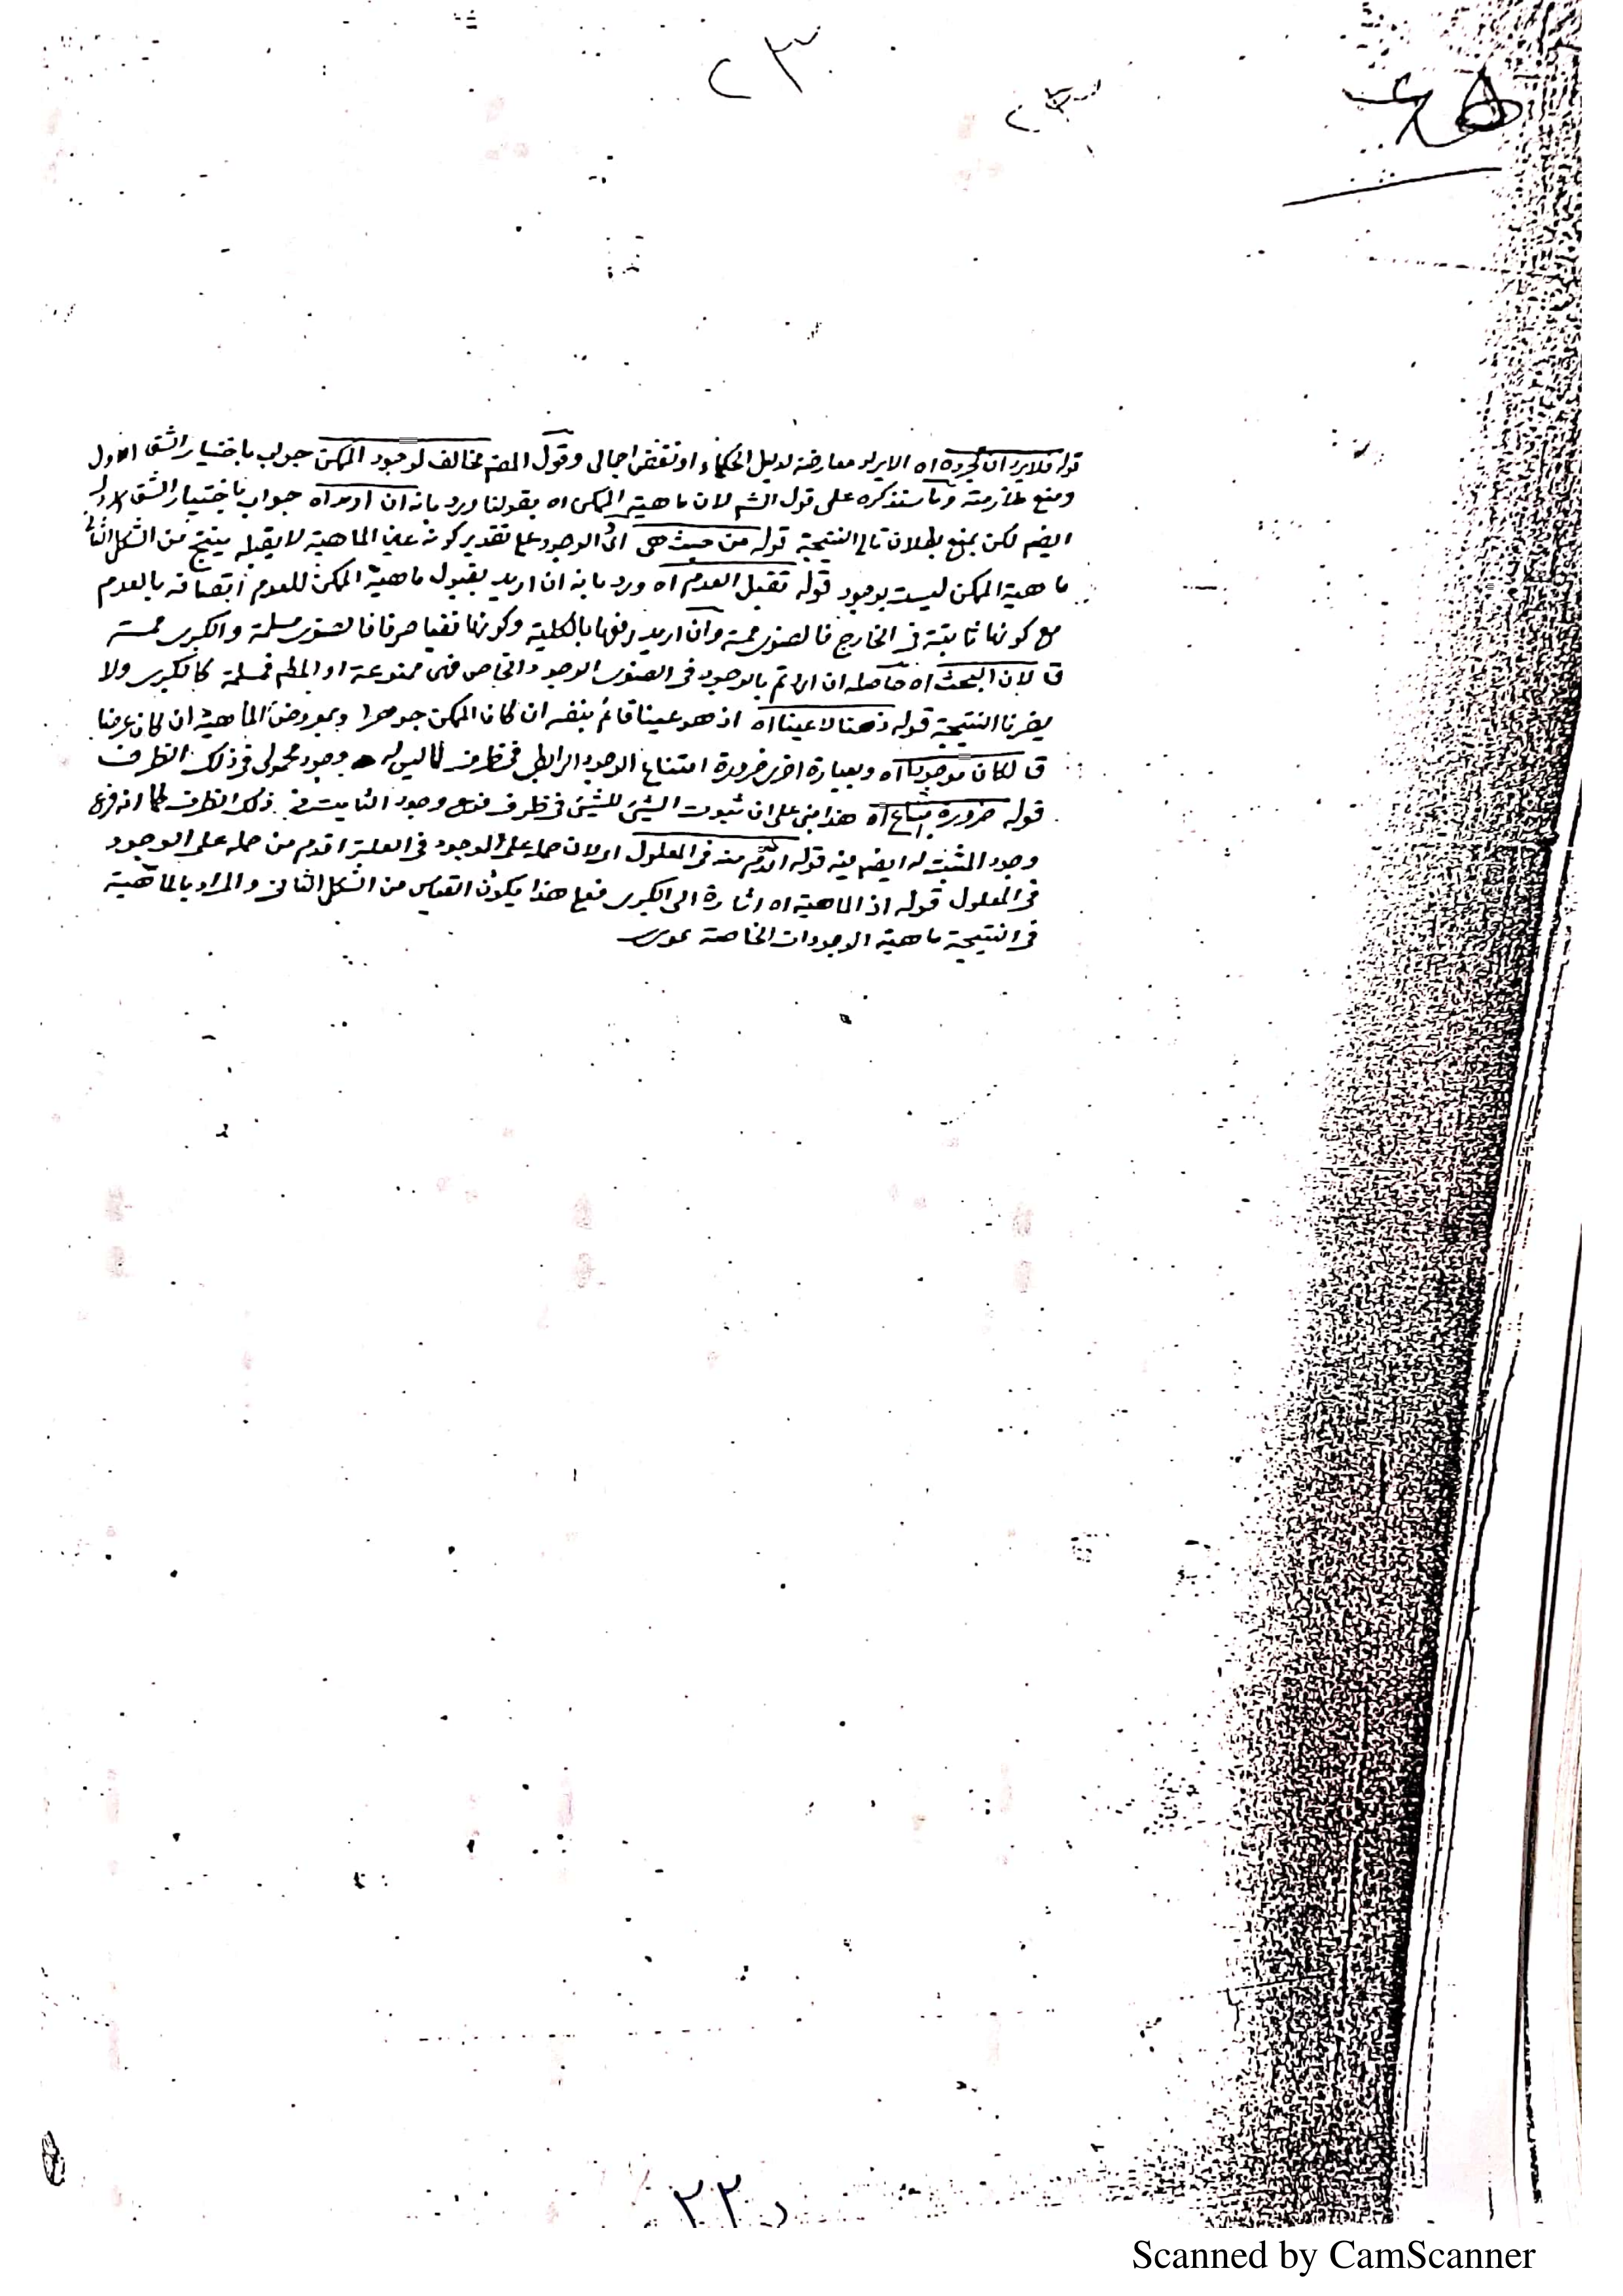 ٢٣
٢٣
قوله فلا يرد ان تجرده اه الايراد معارضة لدليل الحكماء او نقض اجمالى وقول المصنف مخالف لوجود الممكن جواب باختيار الشق الاول
ومنع ملازمته وما سنذكره على قول الشه لان ماهية الممكن اه بقولنا ورد بانه ان اه جواب باختيار الشق الاول
ايضم لكن بمنع بطلان تالى النتيجة قوله من حيث هى اى الوجود على تقدير كونه عين الماهية لا يقبله ينتج من الشكل الثانى
ماهية الممكن ليست بوجود قوله تقبل العدم اه ورد بانه ان اريد بقبول ماهية الممكن للعدم اتصافه بالعدم
مع كونها ثابتة فى الخارج فالصغرى ممنة وان اريد رفعها بالكلية وكونها نفيا صرفا فالصغرى مسلمة والكبرى ممنة
ق لان البحث اه حاصله ان اردتم بالوجود فى الصغرى الوجود الخاص فهى ممنوعة او المطم فمسلمة كالكبرى ولا
يضرنا النتيجة قوله ذهنا لا عينا اه اذ هو عينا قائم بنفسه ان كان الممكن جوهرا وبمعروض الماهية ان كان عرضا
ق لكان موجودا اه وبعبارة اخرى ضرورة امتناع الوجود الرابطى فى ظرف لما ليس له وجود محمولى فى ذلك الظرف
قوله ضرورة امتناع اه هذا مبنى على ان ثبوت الشيئ للشيئ فى ظرف فرع وجود الثابت فى ذلك الظرف كما انه فرع
وجود المثبت له ايضم فيه قوله اقدم منه فى المعلول اولان حمله على الوجود فى العلة اقدم من حمله على الوجود
فى المعلول قوله اذ الماهية اه اشارة الى الكبرى فعلى هذا يكون القياس من الشكل الثانى والمراد بالماهية
فى النتيجة ماهية الوجودات الخاصة
٢٢
Scanned by CamScanner